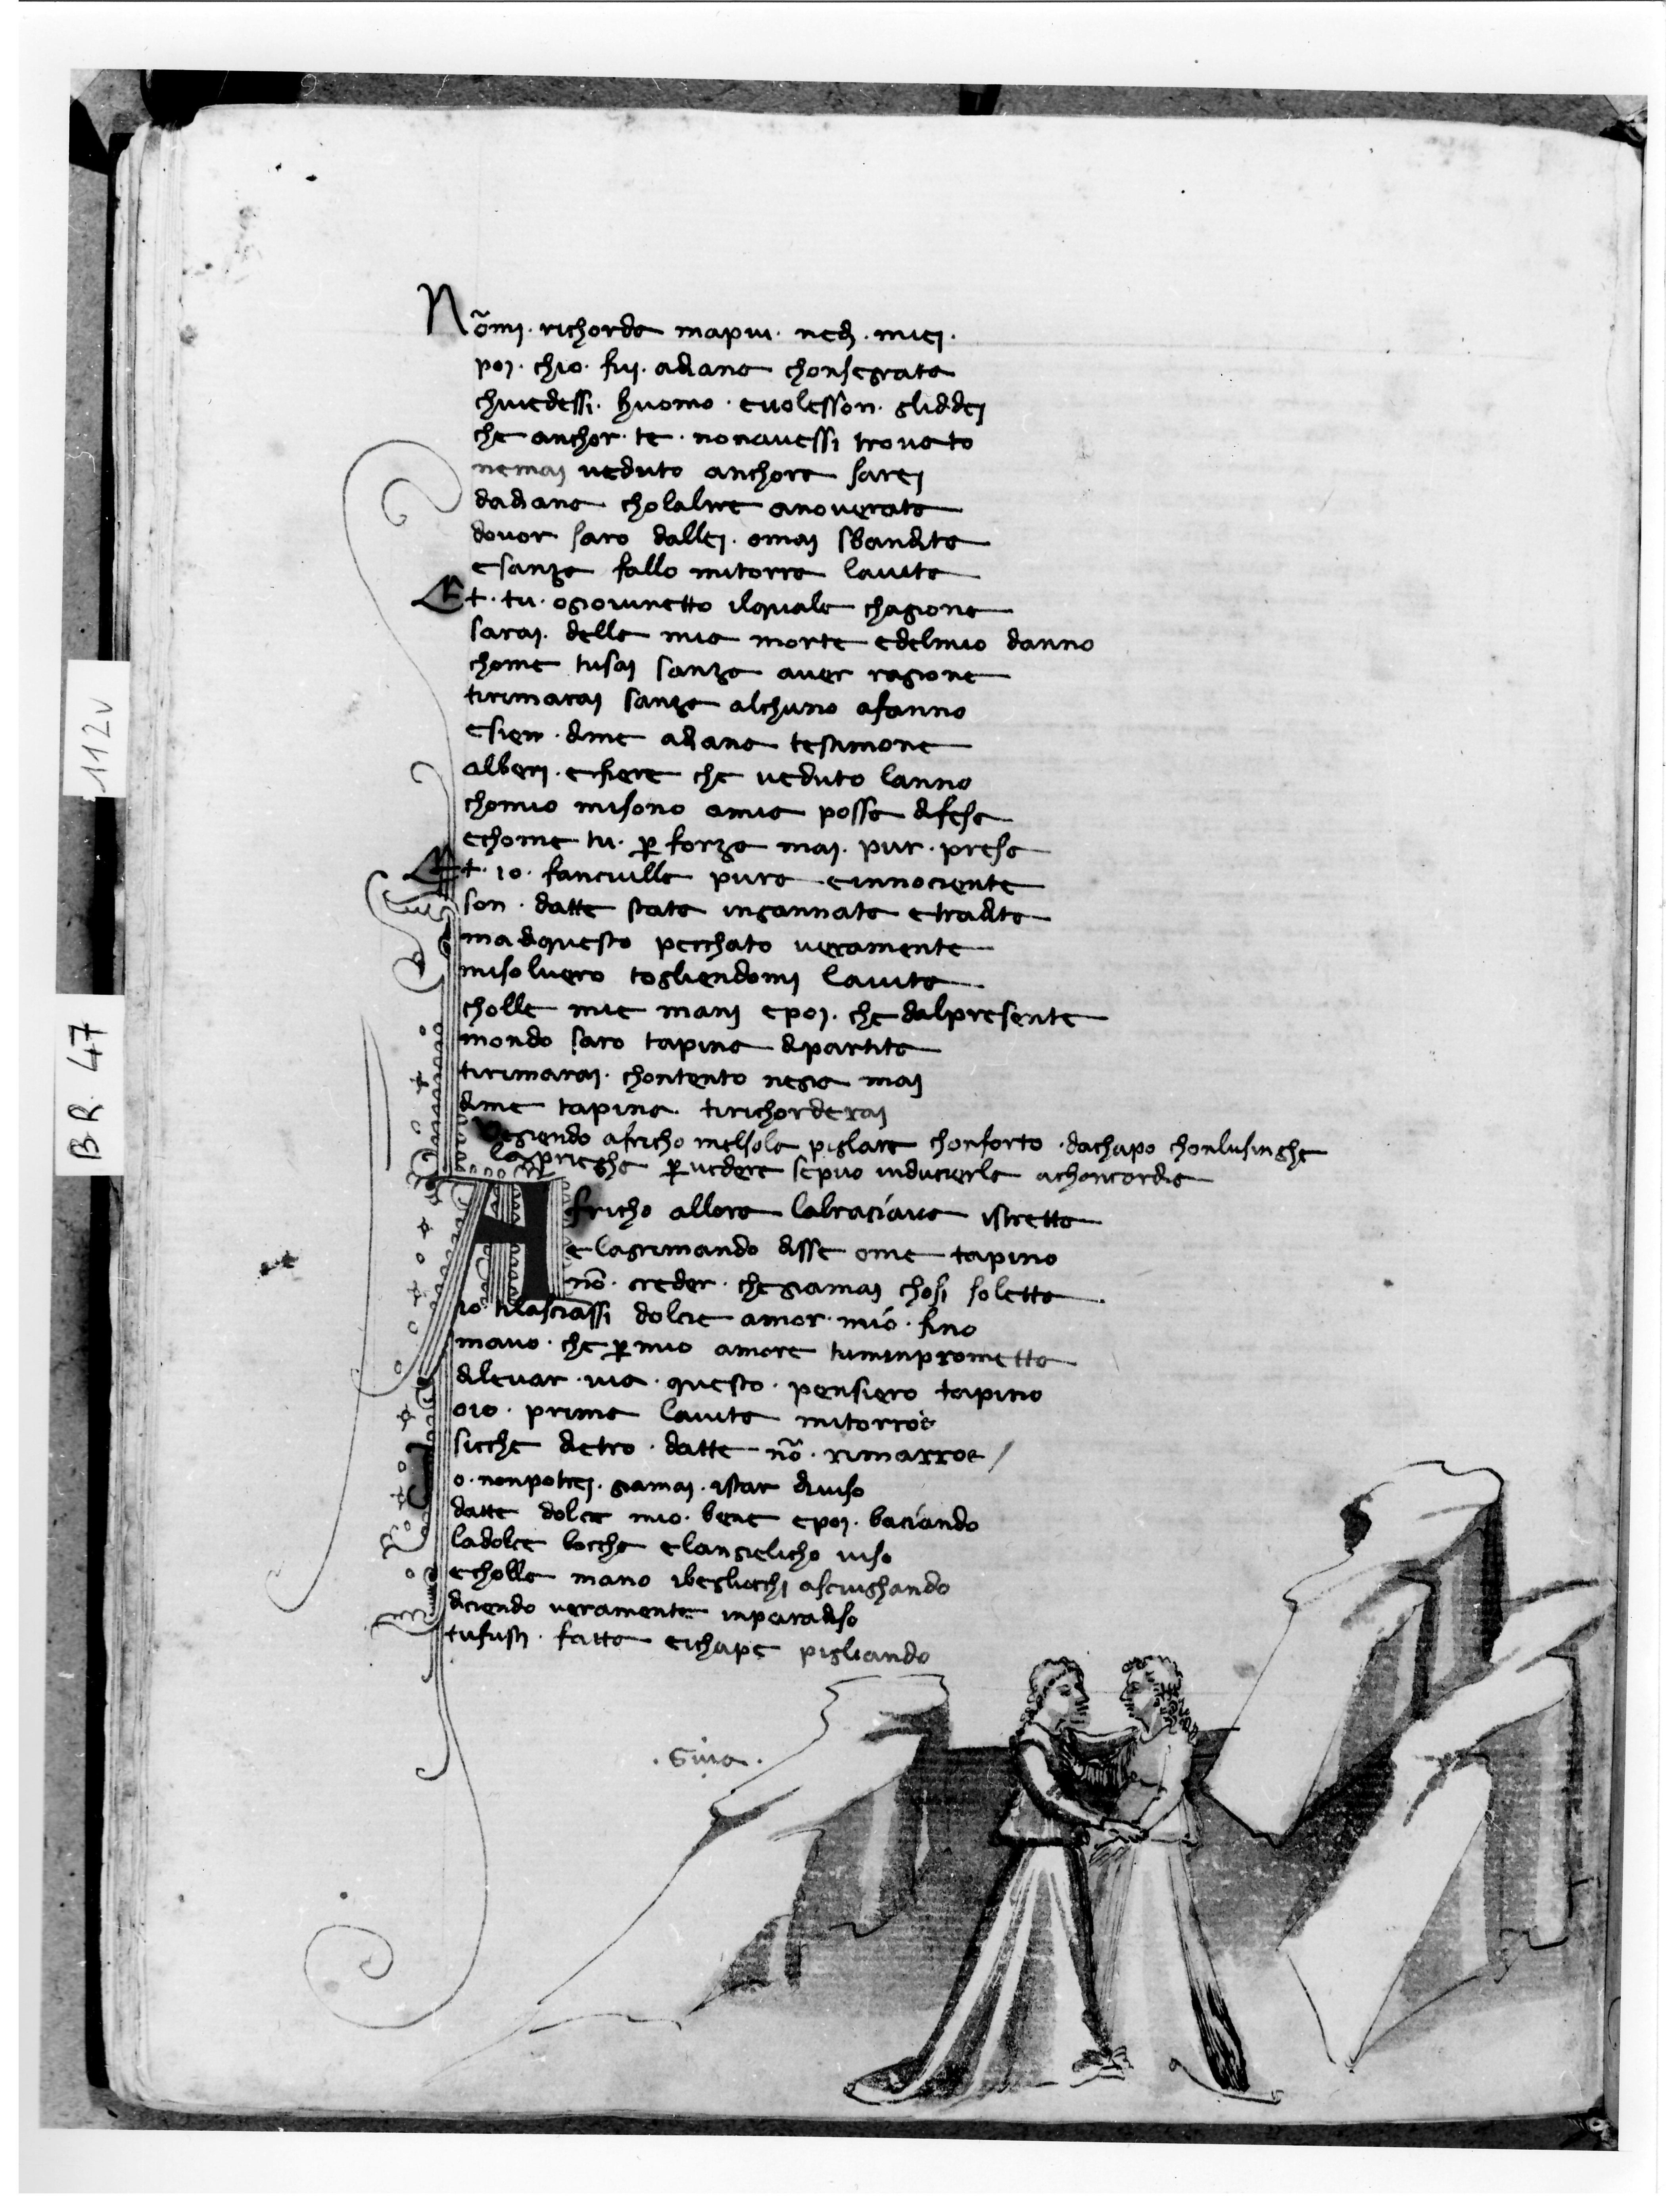 Nōmi · richorda mapiu · nedi · miei ·
poi · chio · fui · adiana chonsegrata
chiuedessi · huomo · euolesson · gliddei
che anchor · te · nonauessi trouato
nemai ueduto anchora sarei
dadiana cholaltre anouerata
douor saro dallei · omai sbandita
esanza fallo mitorro lauita
Et · tu · ogiouinetto ilquale chagione
sarai · della mia morte edelmio danno
chome tusai sanza auer ragione
tirimarai sanza alchuno afanno
esien · dime adiana testimone
alberi · efiere che ueduto lanno
chomio misono amia possa difesa
echome tu · ꝑ forza mai · pur · presa
Et · io · fanciulla pura einnociente
son · datte stata ingannata etradita
madiquesto pecchato ueramente
misoluero togliendomi lauita
cholle mie mani epoi · che dalpresente
mondo saro tapina dipartita
tirimarai · chontento negia mai
dime tapina tirichorderai
Vegiendo africho melsola piglare chonforto · dachapo chonlusinghe
lapriegha ꝑuedere sepuo inducierla achoncordia
Africho allora labraciaua istretta
elagrimando disse ome tapino
nō · creder · chegiamai chosi soletta
io tilasciassi dolcie amor · mio · fino
mauo · che ꝑ mio amore tuminprometta
dileuar · uia · questo · pensiero tapino
oio · prima lauita mitorroe
sicche dietro · datte nō · rimarroe /
Io · nonpotrei · giamai · istar diuiso
datte dolcie mio · bene epoi · baciando
ladolce boccha elangielicho uiso
echolla mano ibegliocchi asciughando
diciendo ueramente inparadiso
tufusti · fatta eichape pigliando
· Giua ·
112v
BR. 47